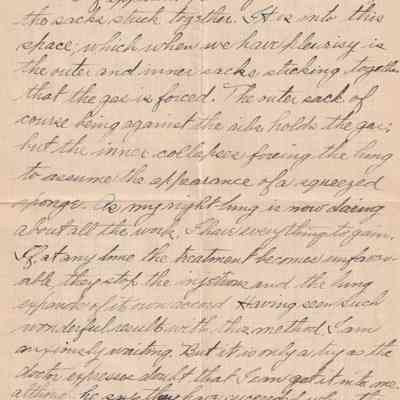 the sacks stuck together. It is into this
space, which when we have pleurisy is
the outer and inner sacks sticking together
that the gas is forced. The outer sack of
course being against the ribs holds the gas;
but the inner collapses forcing the lung
to assume the appearance of a squeezed
sponge. As my right lung is now doing
about all the work, I have everything to gain.
If at any time the treatment becomes unfavor-
able, they stop the injections and the lung
expands of its own accord. Having seen such
wonderful results with this method I am
anxiously waiting. But it is only a try as the
doctor expresses doubt that I can get it into me.
he says they have succeeded